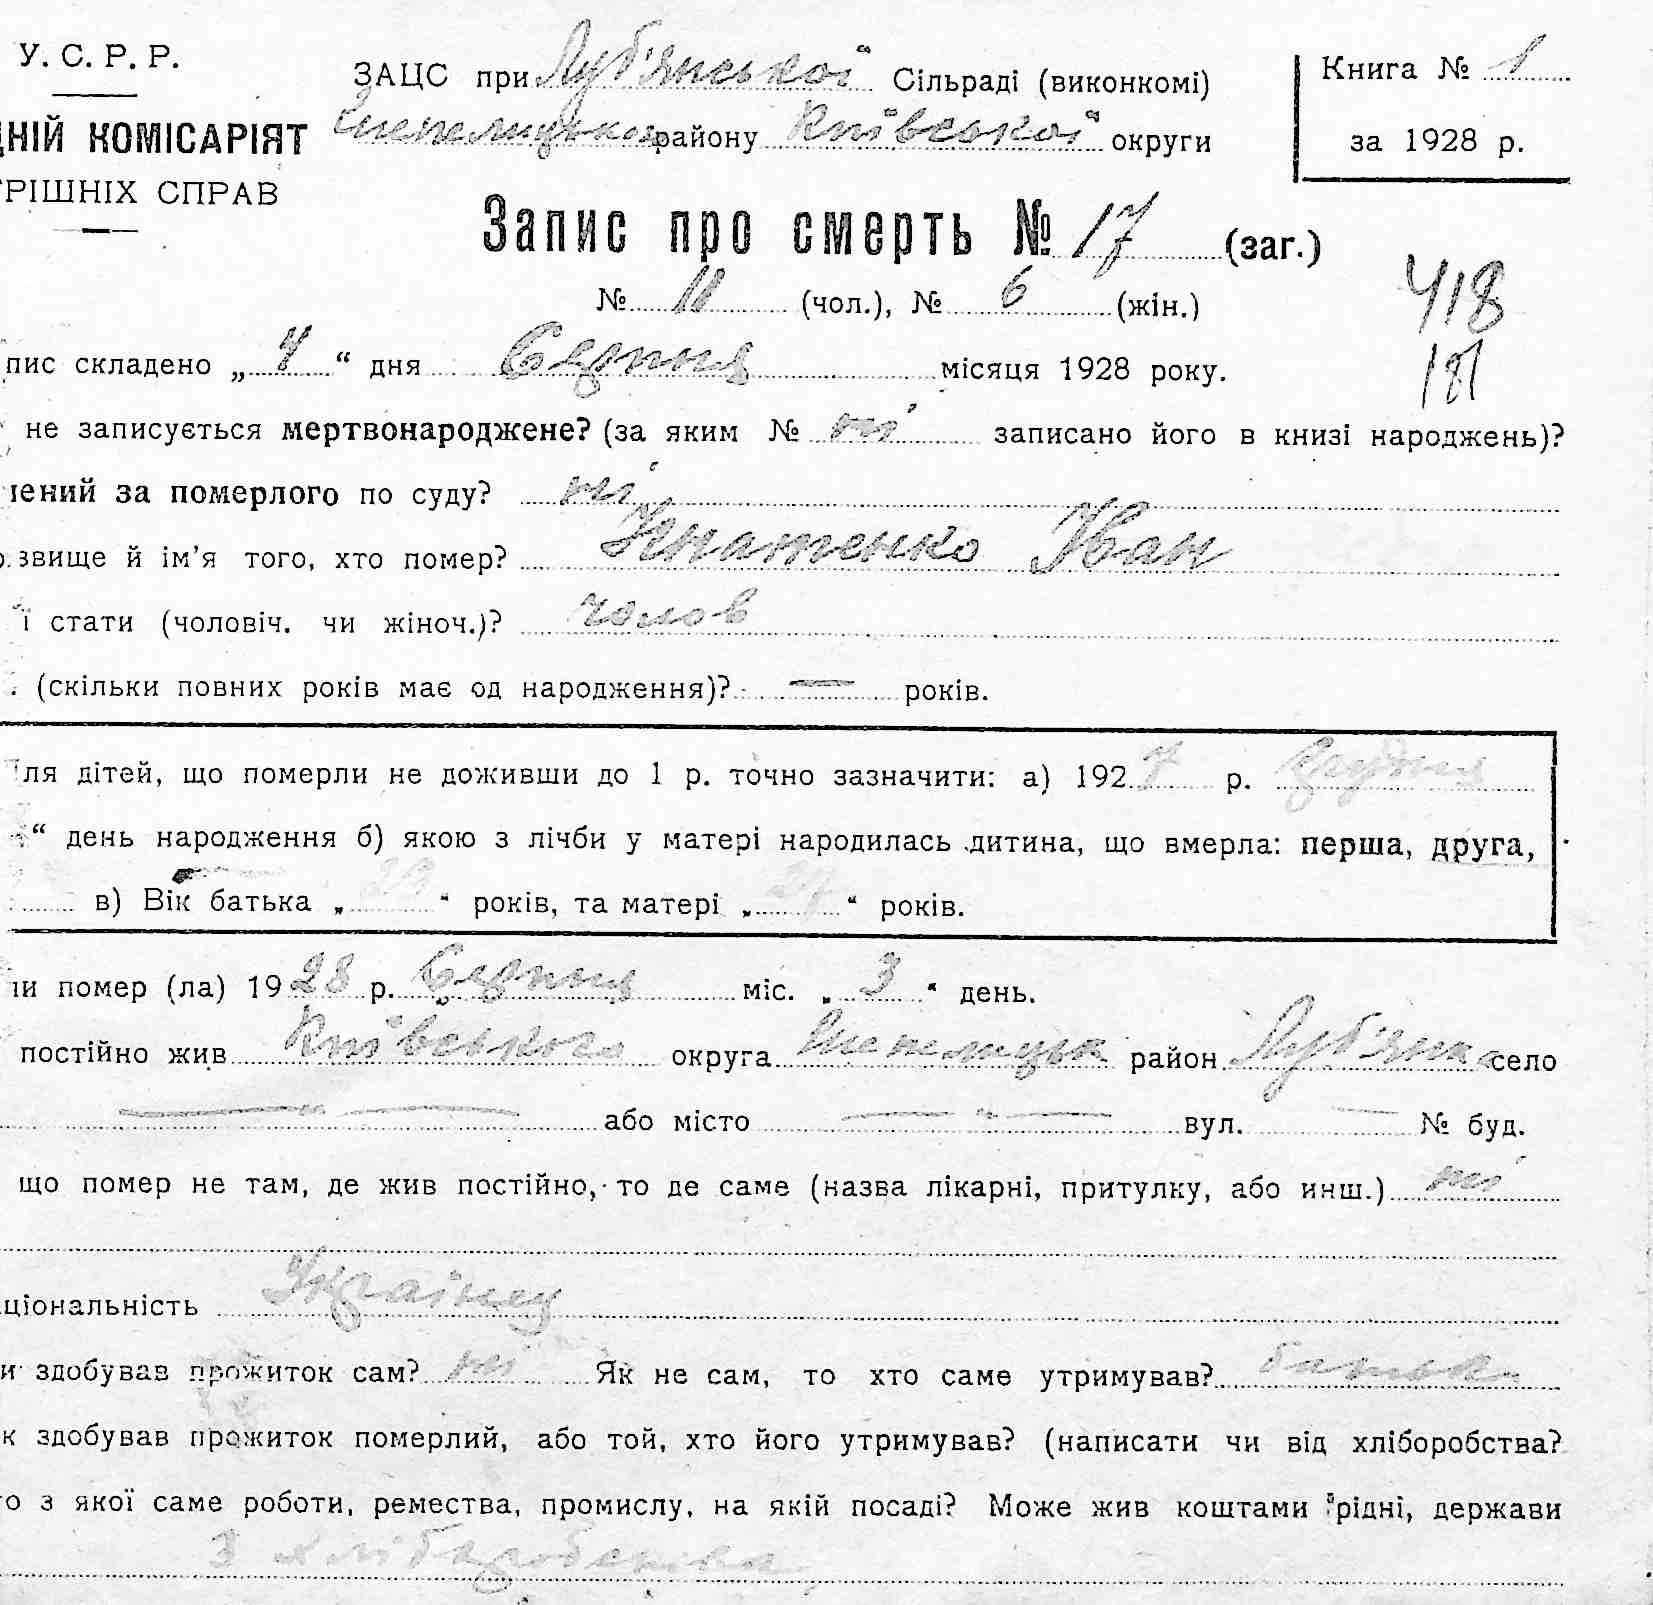 У. С. Р. Р.
ДНІЙ КОМІСАРІЯТ
РІШНІХ СПРАВ
ЗАЦС при Луб'янської Сільраді (виконкомі)
Шепелицьког району Київської округи
Книга № 1
за 1928 р.
Запис про смерть № 17 (заг.)
№ 11 (чол.), № 6 (жін.)
418
181
пис складено „4“ дня Серпня місяця 1928 року.
не записується мертвонароджене? (за яким № ні записано його в книзі народжень)?
лений за померлого по суду? ні
звище й ім'я того, хто помер? Ігнатенко Іван
ї стати (чоловіч. чи жіноч.)? чолов
(скільки повних років має од народження)? — років.
ля дітей, що померли не доживши до 1 р. точно зазначити: а) 1927 р. Грудня
“ день народження б) якою з лічби у матері народилась дитина, що вмерла: перша, друга,
в) Вік батька „29“ років, та матері „27“ років.
ли помер (ла) 1928 р. Серпня міс. „3“ день.
постійно жив Київського округа Шепелицьк район Луб'янка село
або місто вул. № буд.
що помер не там, де жив постійно, то де саме (назва лікарні, притулку, або инш.) ні
ціональність Українец
и здобував прожиток сам? ні Як не сам, то хто саме утримував? батьки
к здобував прожиток померлий, або той, хто його утримував? (написати чи від хліборобства?
о з якої саме роботи, ремества, промислу, на якій посаді? Може жив коштами рідні, держави
З хліборобства